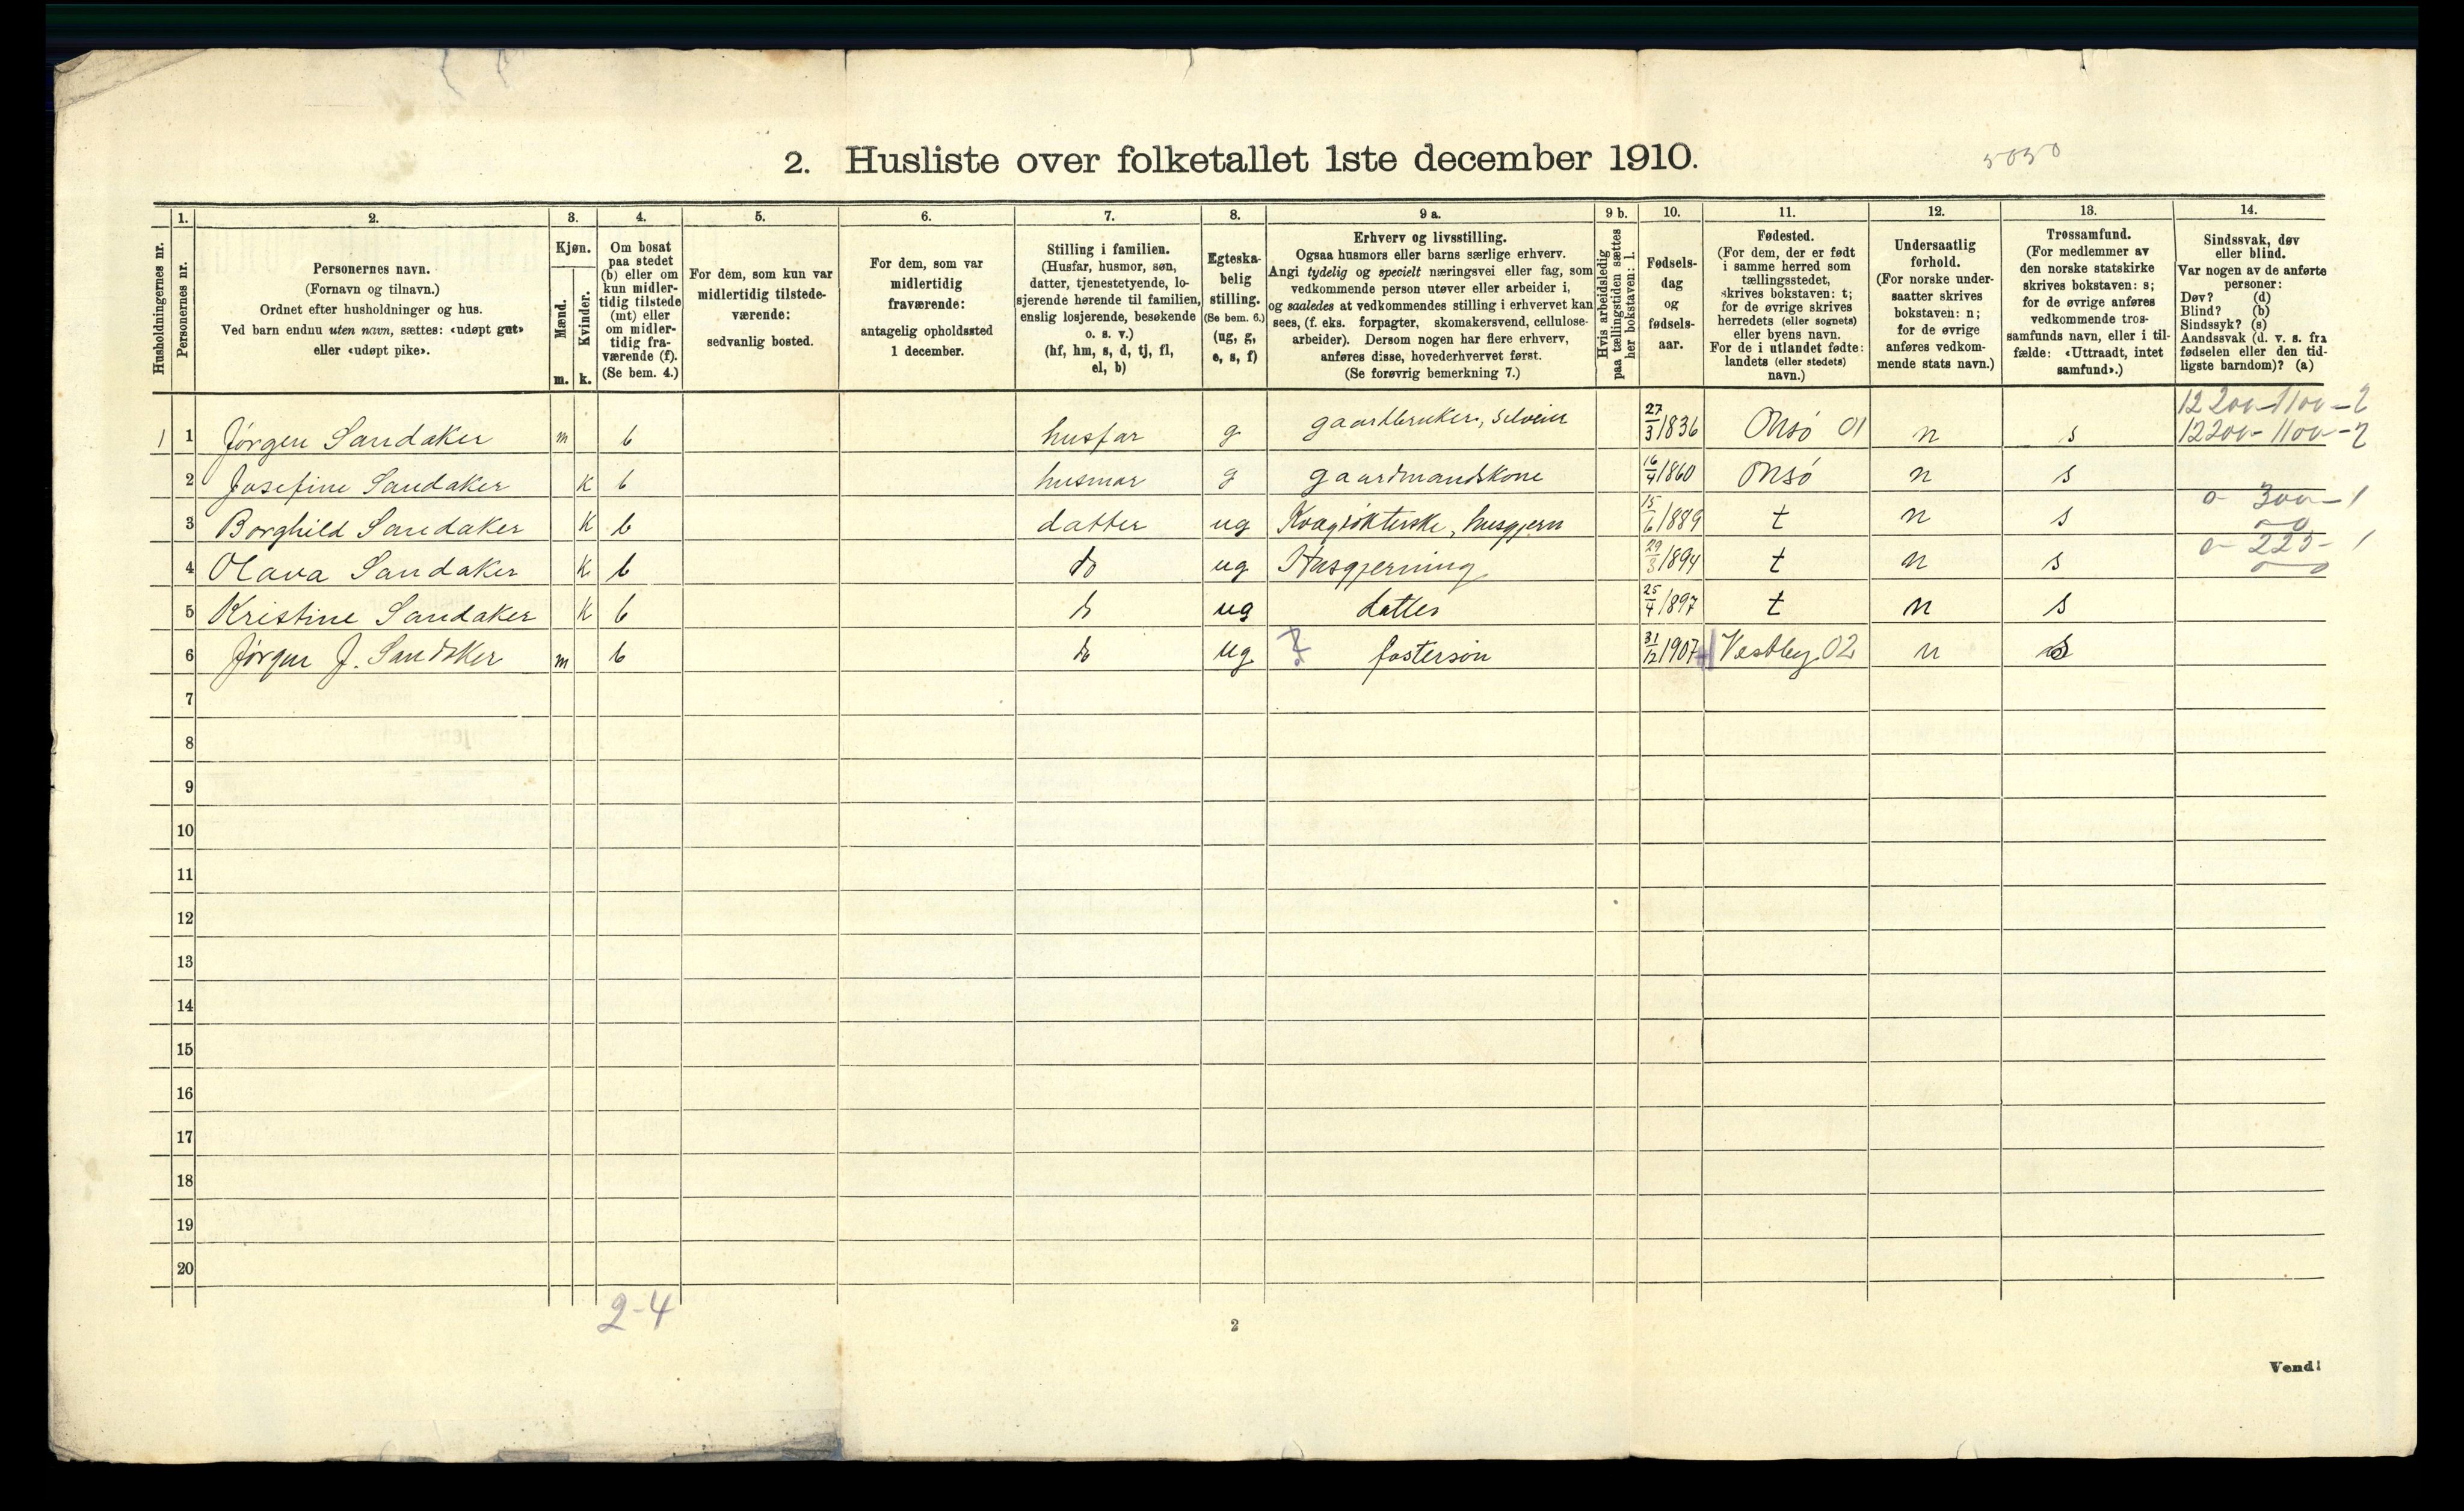 2. Husliste over folketallet 1ste december 1910.
5050
Husholdningernes nr.
1.
Personernes nr.
2.
Personernes navn.
(Fornavn og tilnavn.)
Ordnet efter husholdninger og hus.
Ved barn endnu uten navn, sættes: «udøpt gut»
eller «udøpt pike».
3.
Kjøn.
Mænd.
Kvinder.
m.
k.
4.
Om bosat
paa stedet
(b) eller om
kun midler-
tidig tilstede
(mt) eller
om midler-
tidig fra-
værende (f).
(Se bem. 4.)
5.
For dem, som kun var
midlertidig tilstede-
værende:
sedvanlig bosted.
6.
For dem, som var
midlertidig
fraværende:
antagelig opholdssted
1 december.
7.
Stilling i familien.
(Husfar, husmor, søn,
datter, tjenestetyende, lo-
sjerende hørende til familien,
enslig losjerende, besøkende
o. s. v.)
(hf, hm, s, d, tj, fl,
el, b)
8.
Egteska-
belig
stilling.
(Se bem. 6.)
(ug, g,
e, s, f)
9 a.
Erhverv og livsstilling.
Ogsaa husmors eller barns særlige erhverv.
Angi tydelig og specielt næringsvei eller fag, som
vedkommende person utøver eller arbeider i,
og saaledes at vedkommendes stilling i erhvervet kan
sees, (f. eks. forpagter, skomakersvend, cellulose-
arbeider). Dersom nogen har flere erhverv,
anføres disse, hovederhvervet først.
(Se forøvrig bemerkning 7.)
9 b.
Hvis arbeidsledig
paa tællingstiden sættes
her bokstaven: l.
10.
Fødsels-
dag
og
fødsels-
aar.
11.
Fødested.
(For dem, der er født
i samme herred som
tællingsstedet,
skrives bokstaven: t;
for de øvrige skrives
herredets (eller sognets)
eller byens navn.
For de i utlandet fødte:
landets (eller stedets)
navn.)
12.
Undersaatlig
forhold.
(For norske under-
saatter skrives
bokstaven: n;
for de øvrige
anføres vedkom-
mende stats navn.)
13.
Trossamfund.
(For medlemmer av
den norske statskirke
skrives bokstaven: s;
for de øvrige anføres
vedkommende tros-
samfunds navn, eller i til-
fælde: «Uttraadt, intet
samfund».)
14.
Sindssvak, døv
eller blind.
Var nogen av de anførte
personer:
Døv? (d)
Blind? (b)
Sindssyk? (s)
Aandssvak (d. v. s. fra
fødselen eller den tid-
ligste barndom)? (a)
1 1 Jørgen Sandaker m b husfar g gaardbruker, selveier 27/3 1836 Onsø 01 n s
2 Josefine Sandaker k b husmor g gaardmandskone 16/4 1860 Onsø n s
3 Borghild Sandaker k b datter ug Kvægrøkterske, husgjern 15/6 1889 t n s
4 Olava Sandaker k b do ug Husgjerning 29/3 1894 t n s
5 Kristine Sandaker k b do ug datter 25/4 1897 t n s
6 Jørgen J. Sandaker m b do ug fostersøn 31/12 1907 Vestby 02 n s
7
8
9
10
11
12
13
14
15
16
17
18
19
20
2-4
2
Vend!